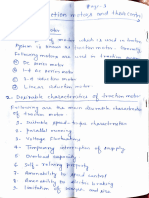 Page-1
Traction motors and their control
motor
of motor which is used in traction
system is known as traction motor.
Following motors are used in traction
① DC series motor
② 1-Φ AC series motor
③
④ Linear induction motor
2. Desirable characteristics of traction motor
Following are the main desirable characteristics
of traction motor
1. Suitable speed-torque characteristics
2. Parallel running
3. Voltage fluctuations
4. Temporary interruption of supply
5. Overload capacity
6. Self-relieving property
7. Amenability to speed control
8. Amenability to electric braking
9. Limitation of weight and size